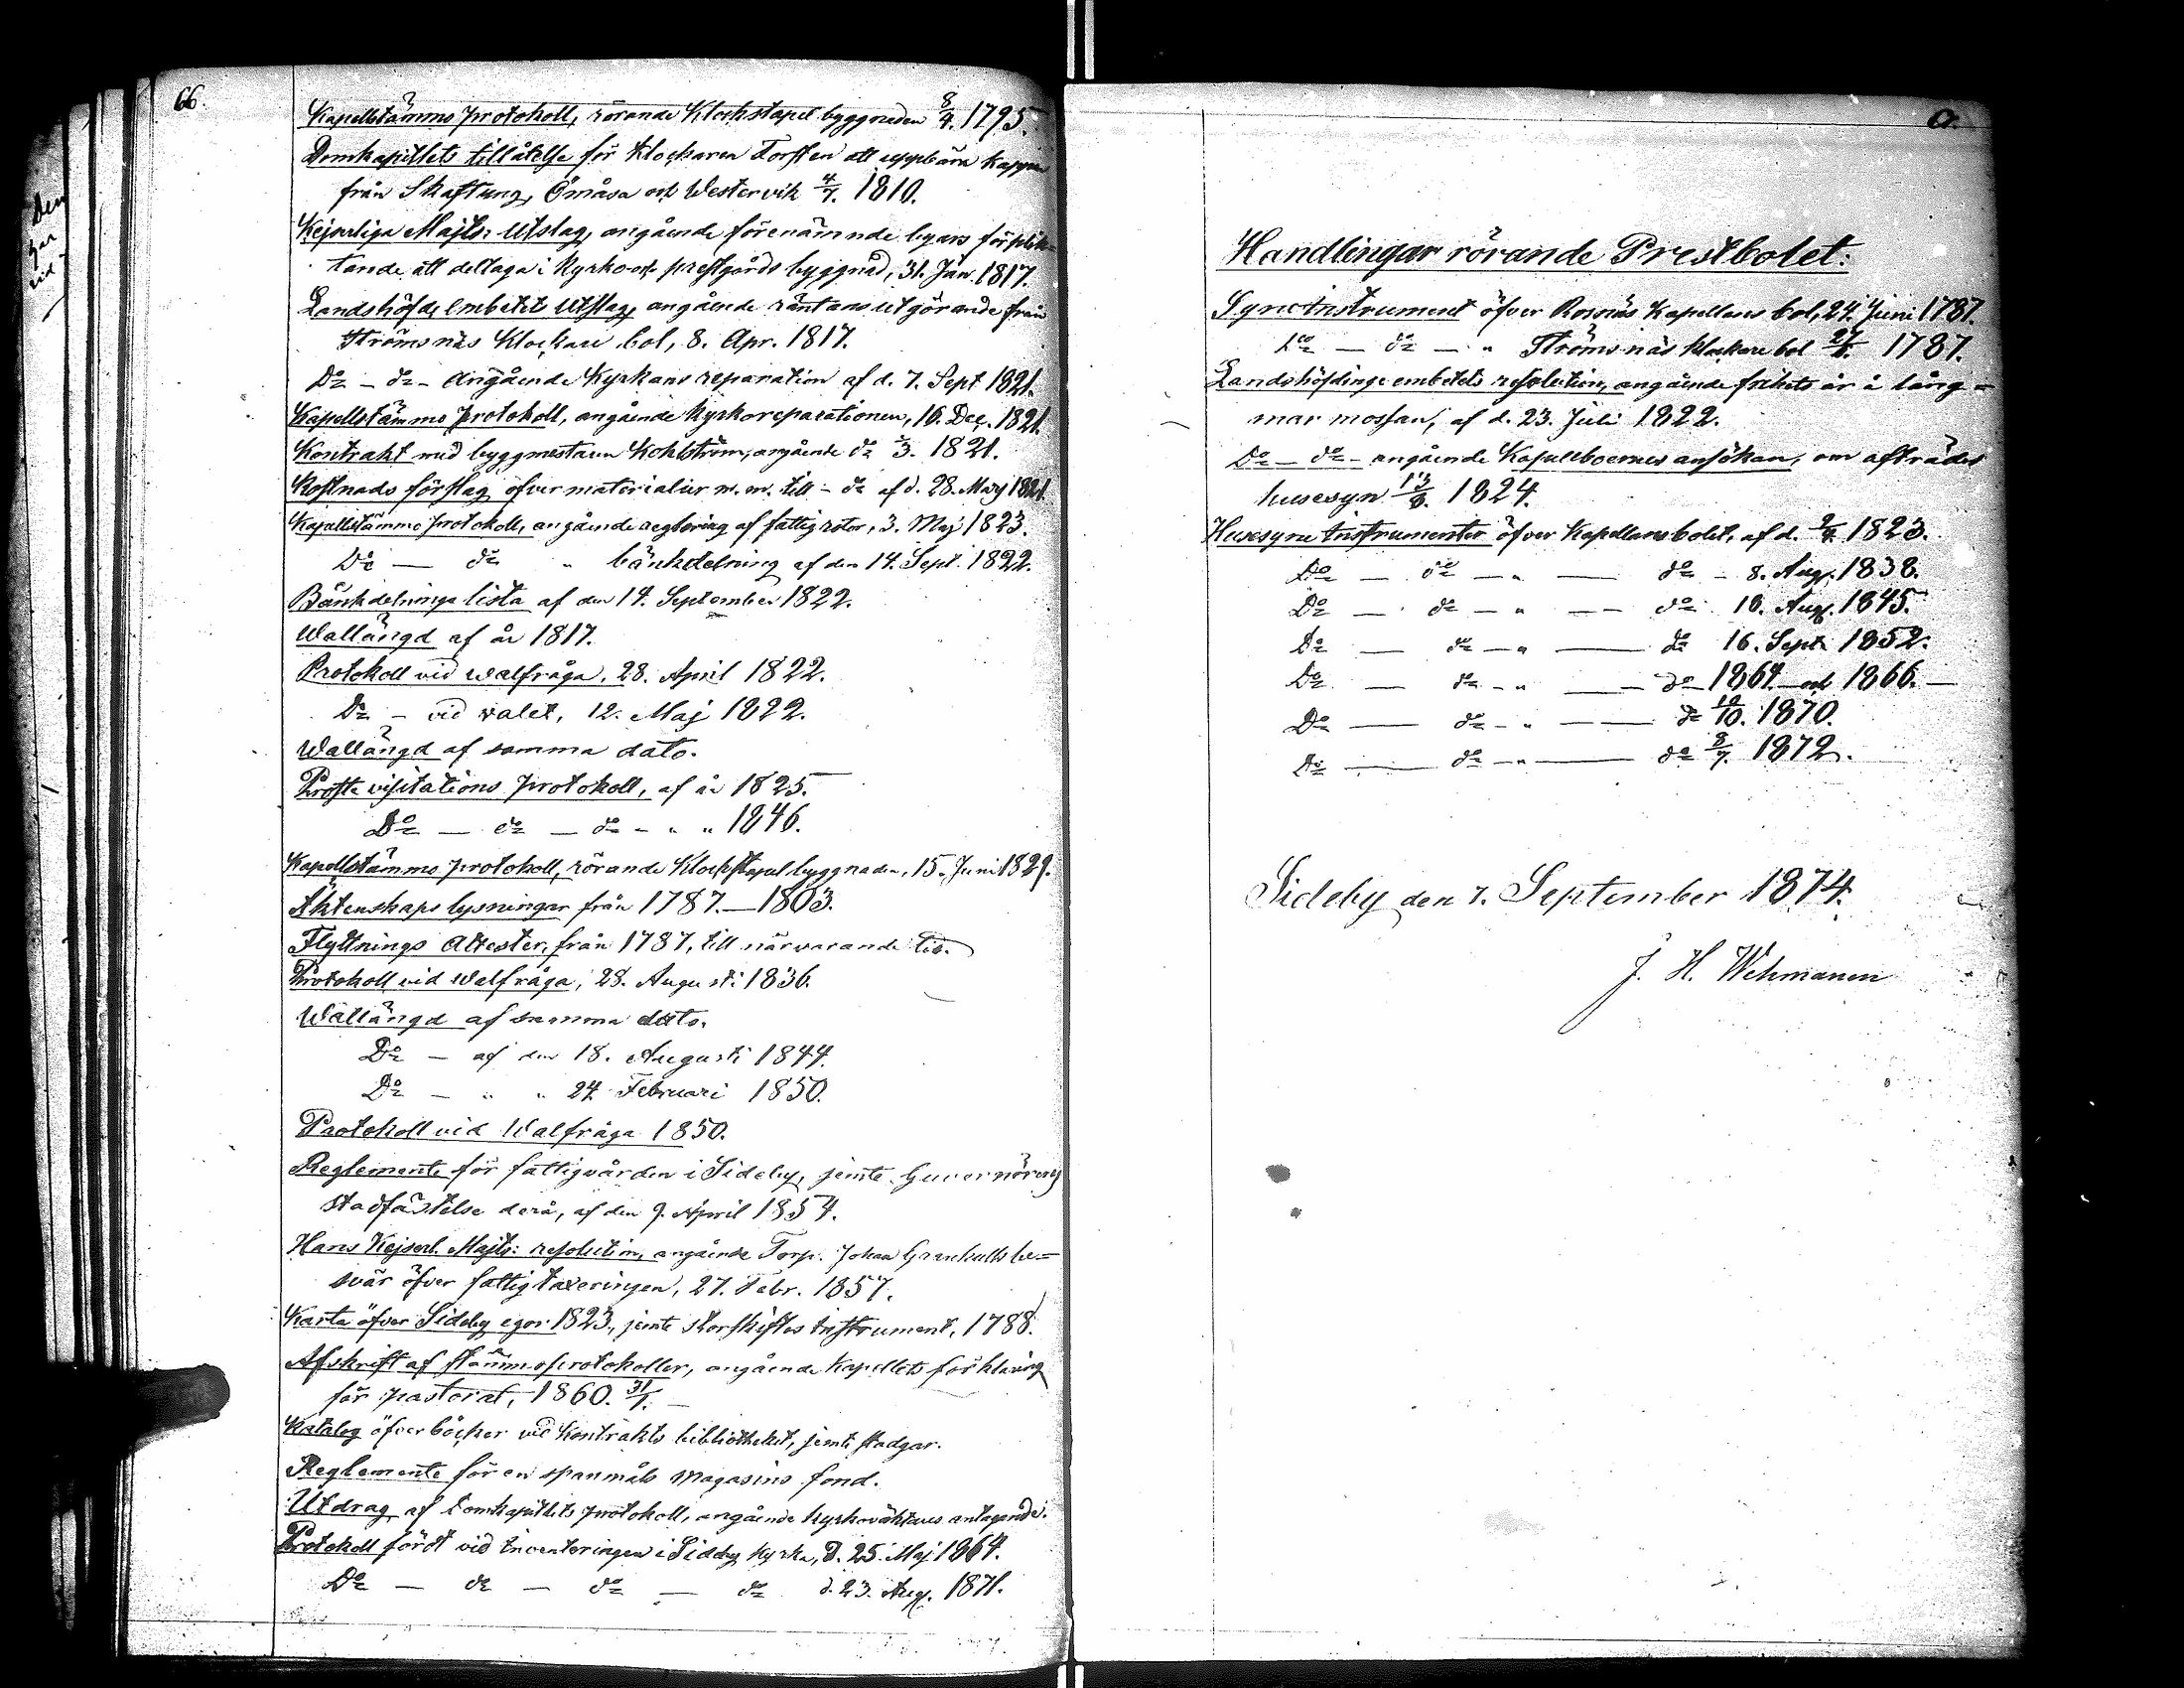 Den
gar
vid
66.
Kapellstämmo protokoll, rörande Klockstapel byggnaden 8/4. 1795.
Domkapitlets tillåtelse för Klockaren Torsten att uppbära Kappar
från Skaftung, Ömåsa och Westervik 4/7. 1810.
Kejserliga Majts: Utslag, angående förenämnde byars förplik=
tande att deltaga i Kyrko och prestgårds byggnad, 31. Jan. 1817.
Landshöfd. Embetets Utslag, angående räntans utgörande från
Strömsnäs Klockare bol, 8. Apr. 1817.
Do - do - Angående Kyrkans reparation af d. 7. Sept 1821.
Kapellstämmo protokoll, angående Kyrkoreparationen, 16. Dec. 1821.
Kontrakt med byggmestaren Kohlström, angående do 3. 1821.
Kostnads förslag öfver materialier m. m. till - do af d. 28. Maj 1821
Kapellstämmo protokoll, angående reglering af fattigrotor, 3. Maj 1823.
Do — do " bänkdelning af den 14. Sept. 1822.
Bänkdelnings lista af den 14. September 1822.
Wallängd af år 1817.
Protokoll vid walfråga, 28. April 1822.
Do - vid valet, 12. Maj 1822.
Wallängd af samma dato.
Prosta visitations protokoll, af år 1825.
Do — do — do - " " 1846.
Kapellstämmo protokoll, rörande Klockstapel byggnaden, 15. Juni 1829.
Äktenskaps lysningar från 1787.—1803.
Flyttnings Attester, från 1787, till närvarande tid.
Protokoll vid Walfråga, 28. Augusti 1836.
Wallängd af samma dato.
Do — af den 18. Augusti 1844.
Do — " " 24 Februari 1850.
Protokoll vid Walfråga 1850.
Reglemente för fattigvården i Sideby, jemte Guvernörens
stadfästelse derå, af den 9. April 1854.
Hans Kejserl. Majts: resolution, angående Torp. Johan Grankulls be=
svär öfver fattigtaxeringen, 27. Febr. 1857.
Karta öfver Sideby egor 1823, jemte Storskiftes instrument, 1788.
Afskrift af stämmoprotokoller, angående Kapellets förklaring
för pastorat, 1860. 31/1. —
Katalog öfver böcker vid Kontrakts bibliotheket, jemte stadgar.
Reglemente för en spanmåls magasins fond.
Utdrag af Domkapitlets protokoll, angående kyrkoväktares antagande.
Protokoll fördt vid Inventeringen i Sideby Kyrka, d. 25. Maj 1864.
Do — do — do — do d. 23. Aug. 1871.
Handlingar rörande Prestbolet:
Syneinstrument öfver Rosnäs Kapellans bol, 24. Juni 1787.
Do — do — " Strömsnäs klockare bol 1787.
Landshöfdinge embetets resolution, angående frihets år å lång=
mar mossan, af d. 23. Juli 1822.
Do — do - angående Kapellboernes ansökan, om afträdes
husesyn 13/8. 1824.
Husesyne Instrumenter öfver Kapellans bolet, af d. 2/4. 1823.
Do — do — " — do - 8. Aug. 1838.
Do — do — " — do 16. Aug. 1845.
Do — do — " — do 16. Sept. 1852.
Do — do - " — do 1864 och 1866. —
Do — do - " — do 10/10. 1870.
Do — do - " — do 8/7. 1872.
Sideby den 7. September 1874.
J. H. Wehmanen